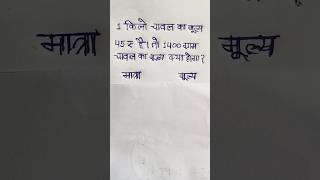 1 किलो चावल का मूल्य
45 रु है। तो 1400 ग्राम
चावल का मूल्य क्या होगा?
मात्रा मूल्य
मात्रा मूल्य